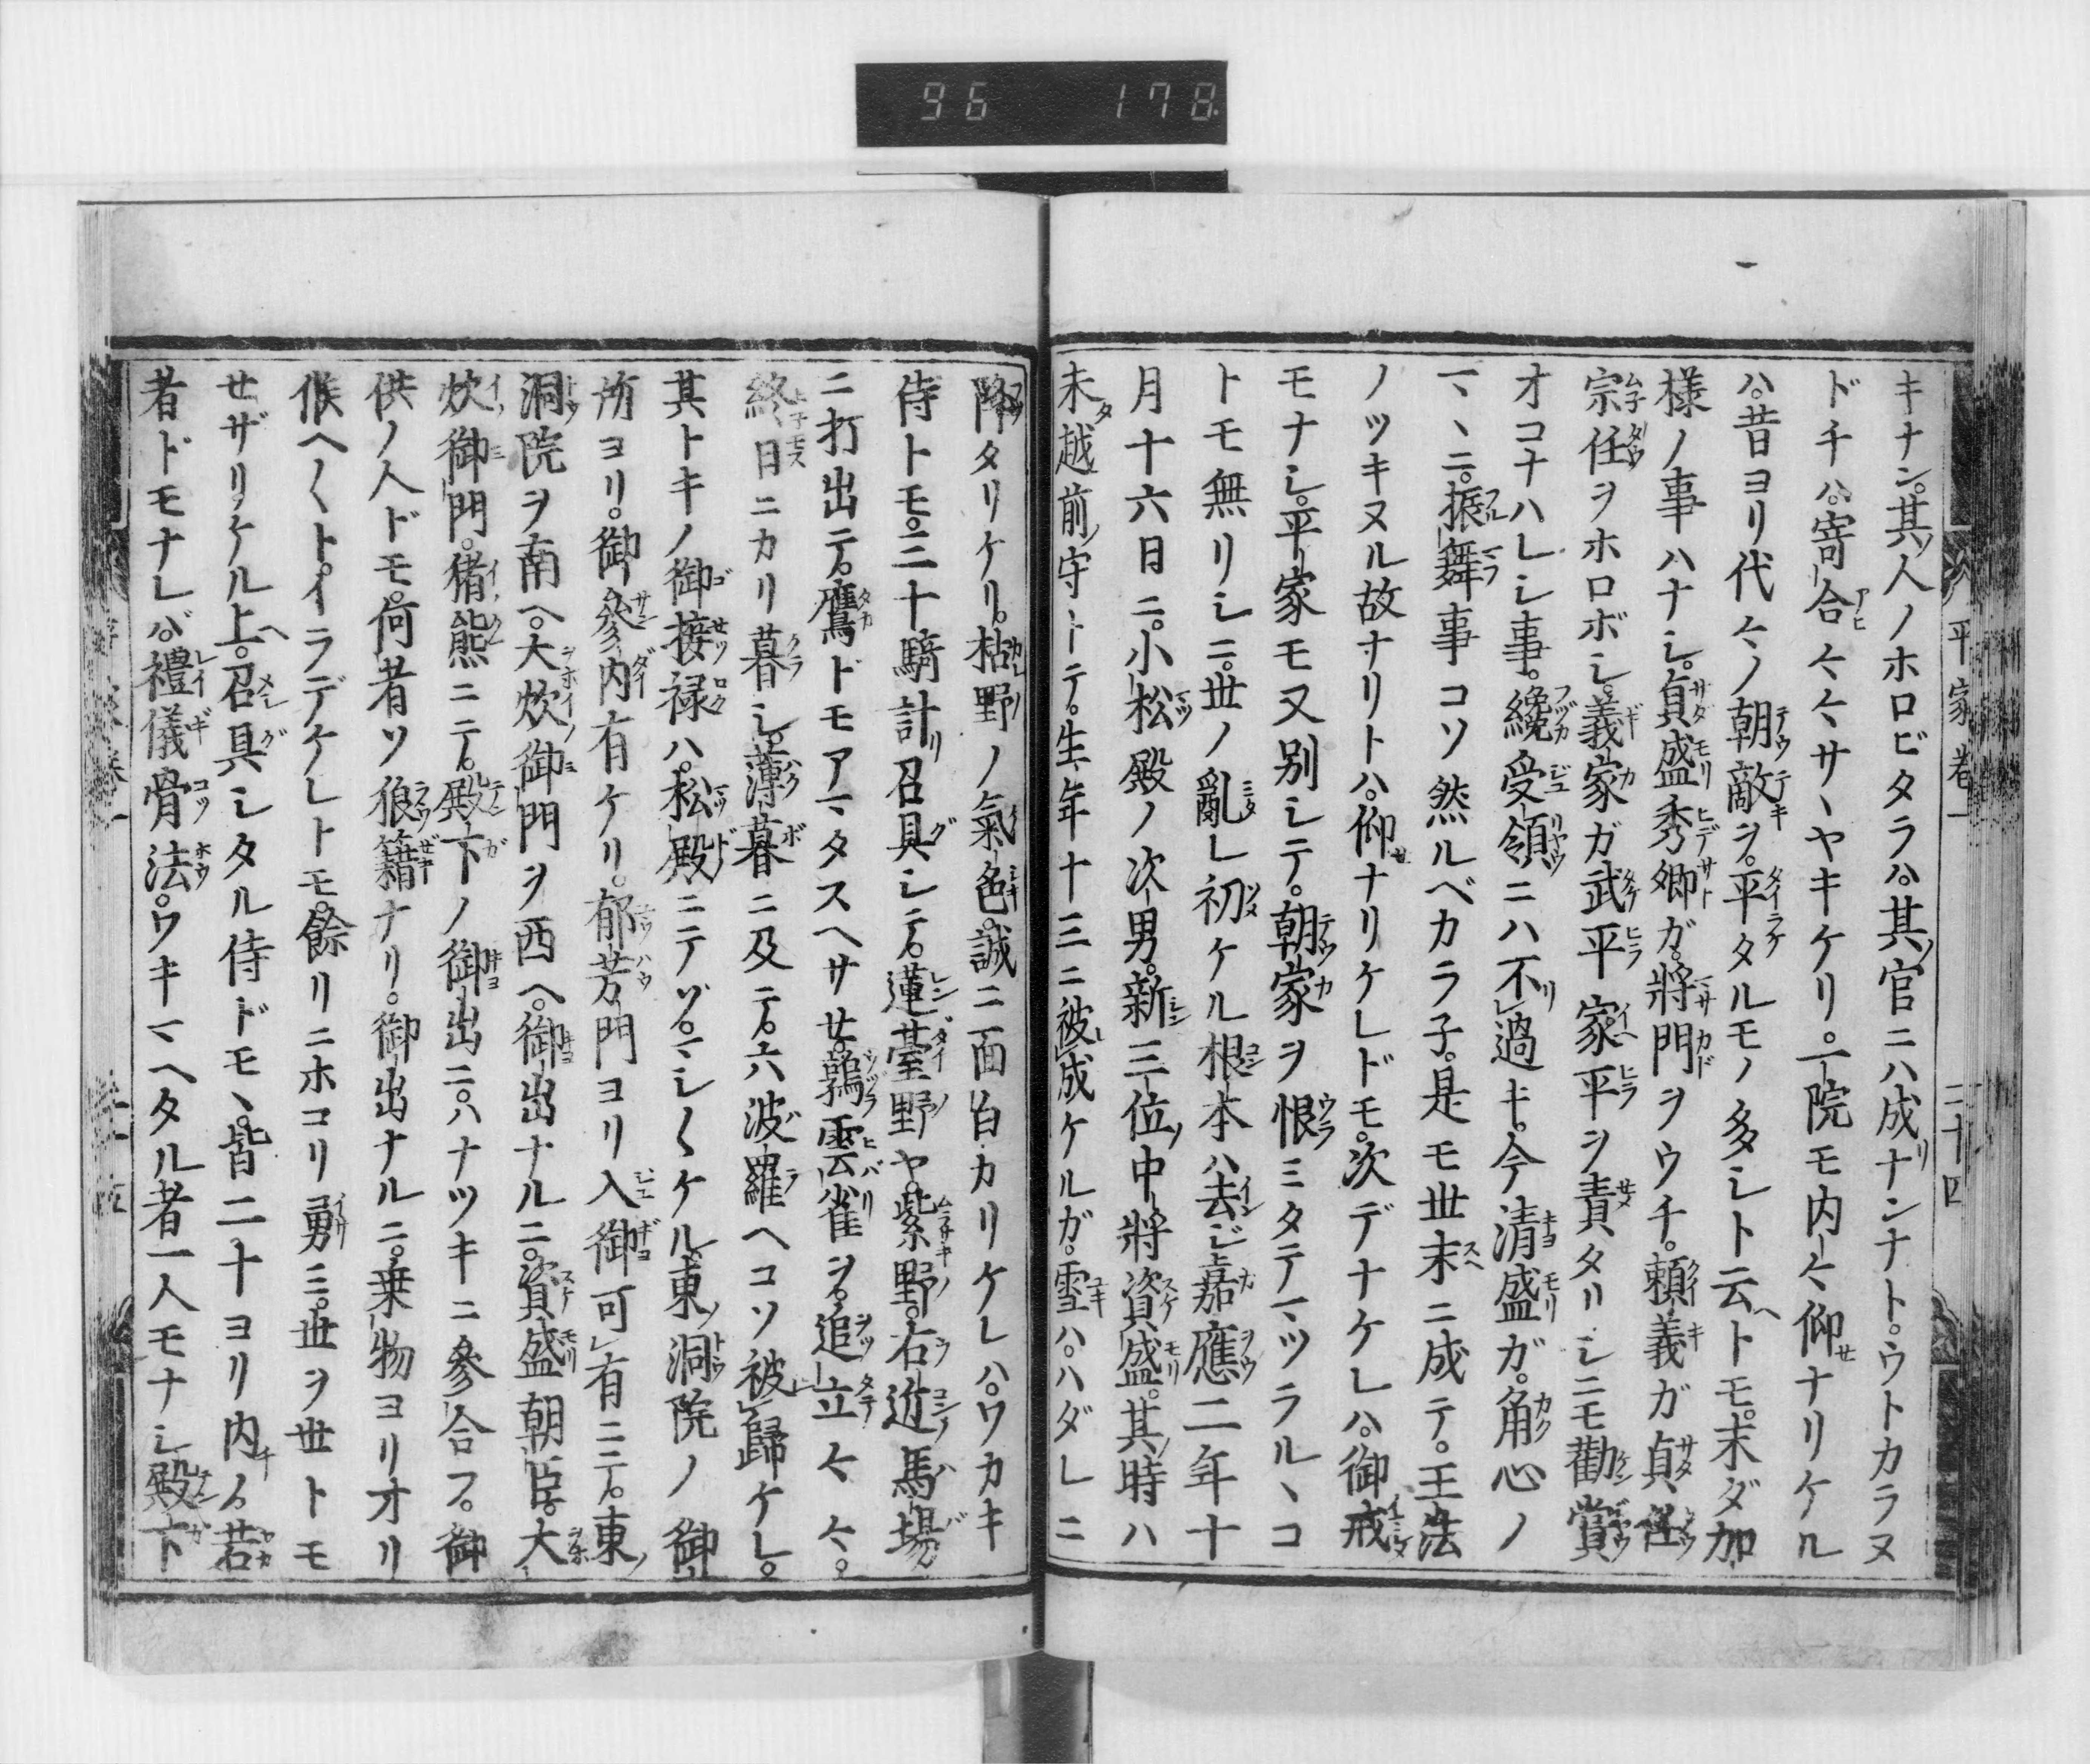 96 178
平家巻一 二十四
キナン。其人ノホロビタラハ。其ノ官ニハ成リナンナト。ウトカラヌ
ドチハ。寄合ヒ〳〵サヽヤキケリ。一院モ内々仰せナリケル
ハ。昔ヨリ代々ノ朝敵ヲ。平タルモノ多シト云ヘトモ。末ダ加
様ノ事ハナシ。貞盛秀郷ガ。將門ヲウチ。頼義ガ貞任
宗任ヲホロボシ。義家ガ武平家平ヲ責タリシニモ勸賞
オコナハレシ事。纔受領ニハ不過キ。今清盛ガ。角心ノ
マヽニ。振舞事コソ然ルベカラ子。是モ世末ニ成テ。王法
ノツキヌル故ナリトハ。仰ナリケレドモ。次デナケレハ。御戒
モナシ。平家モ又別シテ。朝家ヲ恨ミタテマツラルヽコ
トモ無リシニ。世ノ亂レ初ケル根本ハ去ジ嘉應二年十
月十六日ニ。小松殿ノ次男。新三位ノ中將資盛。其ノ時ハ
未タ越前ノ守トテ。生年十三ニ被成ケルガ。雪ハ。ハダレニ
降タリケリ。枯野ノ氣色。誠ニ面白カリケレハ。ワカキ
侍トモ。三十騎計リ召具シテ。蓮臺野ヤ。紫野。右近馬場
ニ打出テ。鷹ドモアマタスヘサせ。鶉雲雀ヲ。追立々々。
終日ニカリ暮シ。薄暮ニ及テ。六波羅ヘコソ被歸ケレ。
其トキノ御接禄ハ。松殿ニテゾ。マシ〳〵ケル。東ノ洞院ノ御
所ヨリ。御參内有ケリ。郁芳門ヨリ入御可有ニテ。東ノ
洞院ヲ南ヘ。大炊御門ヲ西ヘ。御出ナルニ。資盛朝臣。大
炊御門。猪熊ニテ。殿下ノ御出ニ。ハナツキニ參合フ。御
供ノ人ドモ。何者ソ狼籍ナリ。御出ナルニ。乗物ヨリオリ
候ヘ〳〵ト。イラデケレトモ。餘リニホコリ勇ミ。世ヲ世トモ
せザリケル上ヘ。召具シタル侍ドモヽ。皆二十ヨリ内チノ。若
者ドモナレバ。禮儀骨法。ワキマヘタル者一人モナシ。殿下